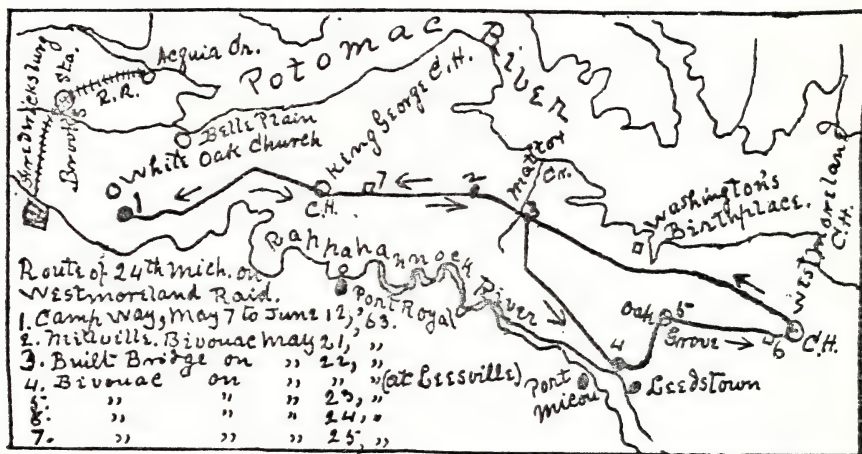 Fredericksburg
Brooks Sta.
R.R.
Acquia Cr.
Potomac River
Belle Plain
White Oak Church
1
King George C.H.
C.H.
7
2
Mattox Cr.
3
Washington's
Birthplace.
Westmoreland C.H.
C.H.
Rappahannock River
Port Royal
Oak 5
Grove
6
4
Port
Micou
Leedstown
Route of 24th Mich. on
Westmoreland Raid.
1. Camp Way, May 7 to June 12, '63.
2. Millville. Bivouac May 21, "
3. Built Bridge on " 22, "
4. Bivouac on " " " (at Leesville)
5. " " " 23, "
6. " " " 24, "
7. " " " 25, "